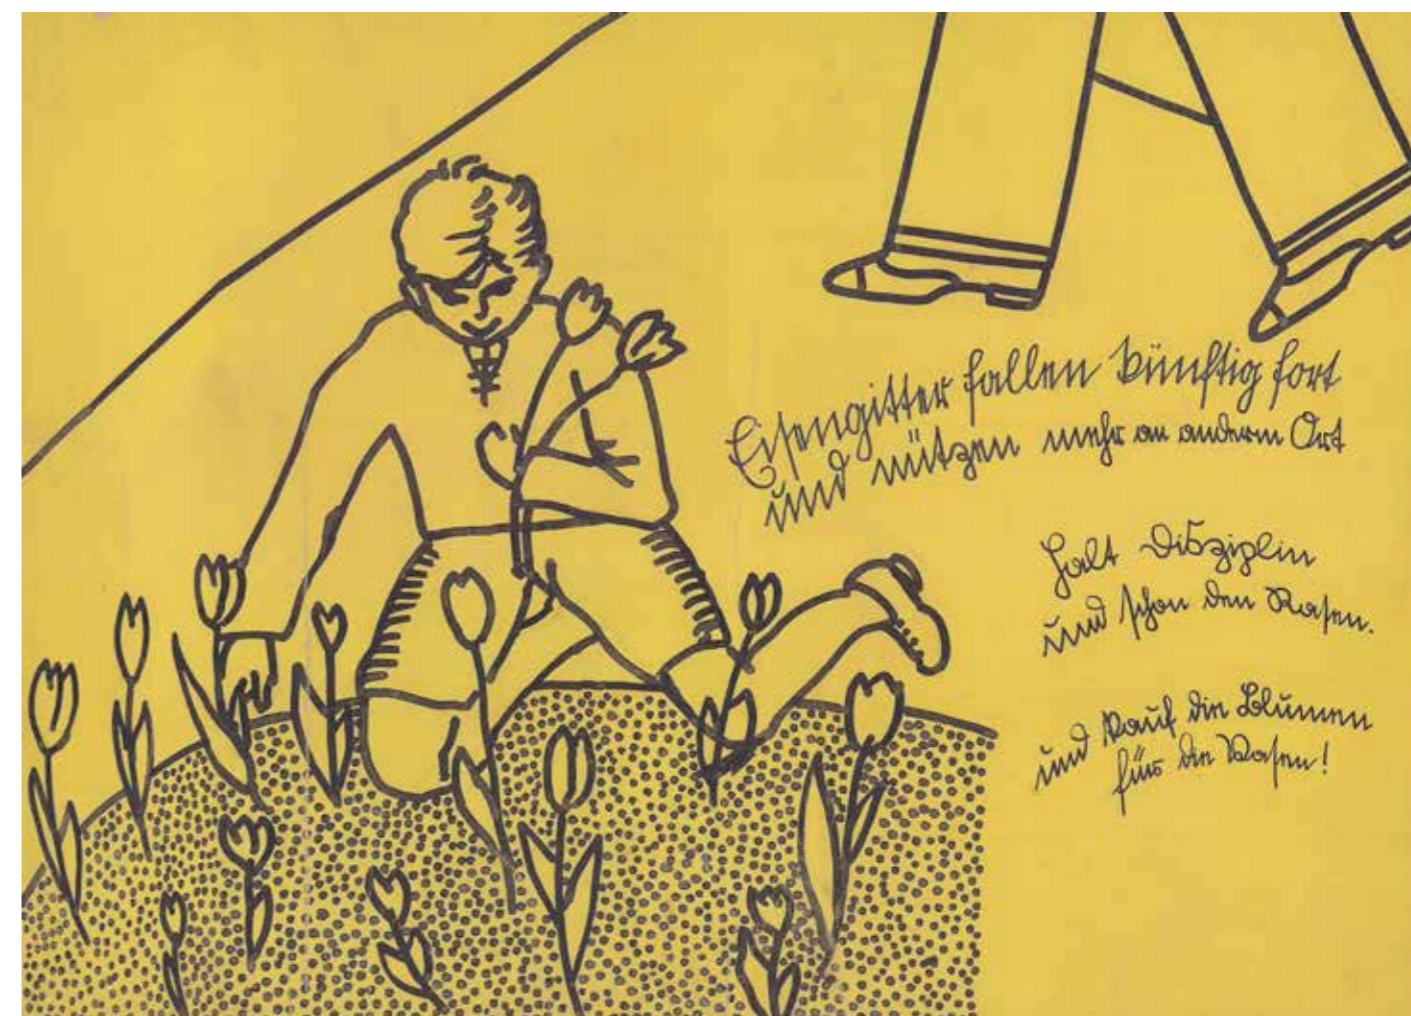 Eisengitter fallen künftig fort
und nützen mehr an anderm Ort
Halt Disziplin
und schon den Rasen.
und kauf die Blumen
für die Vasen!